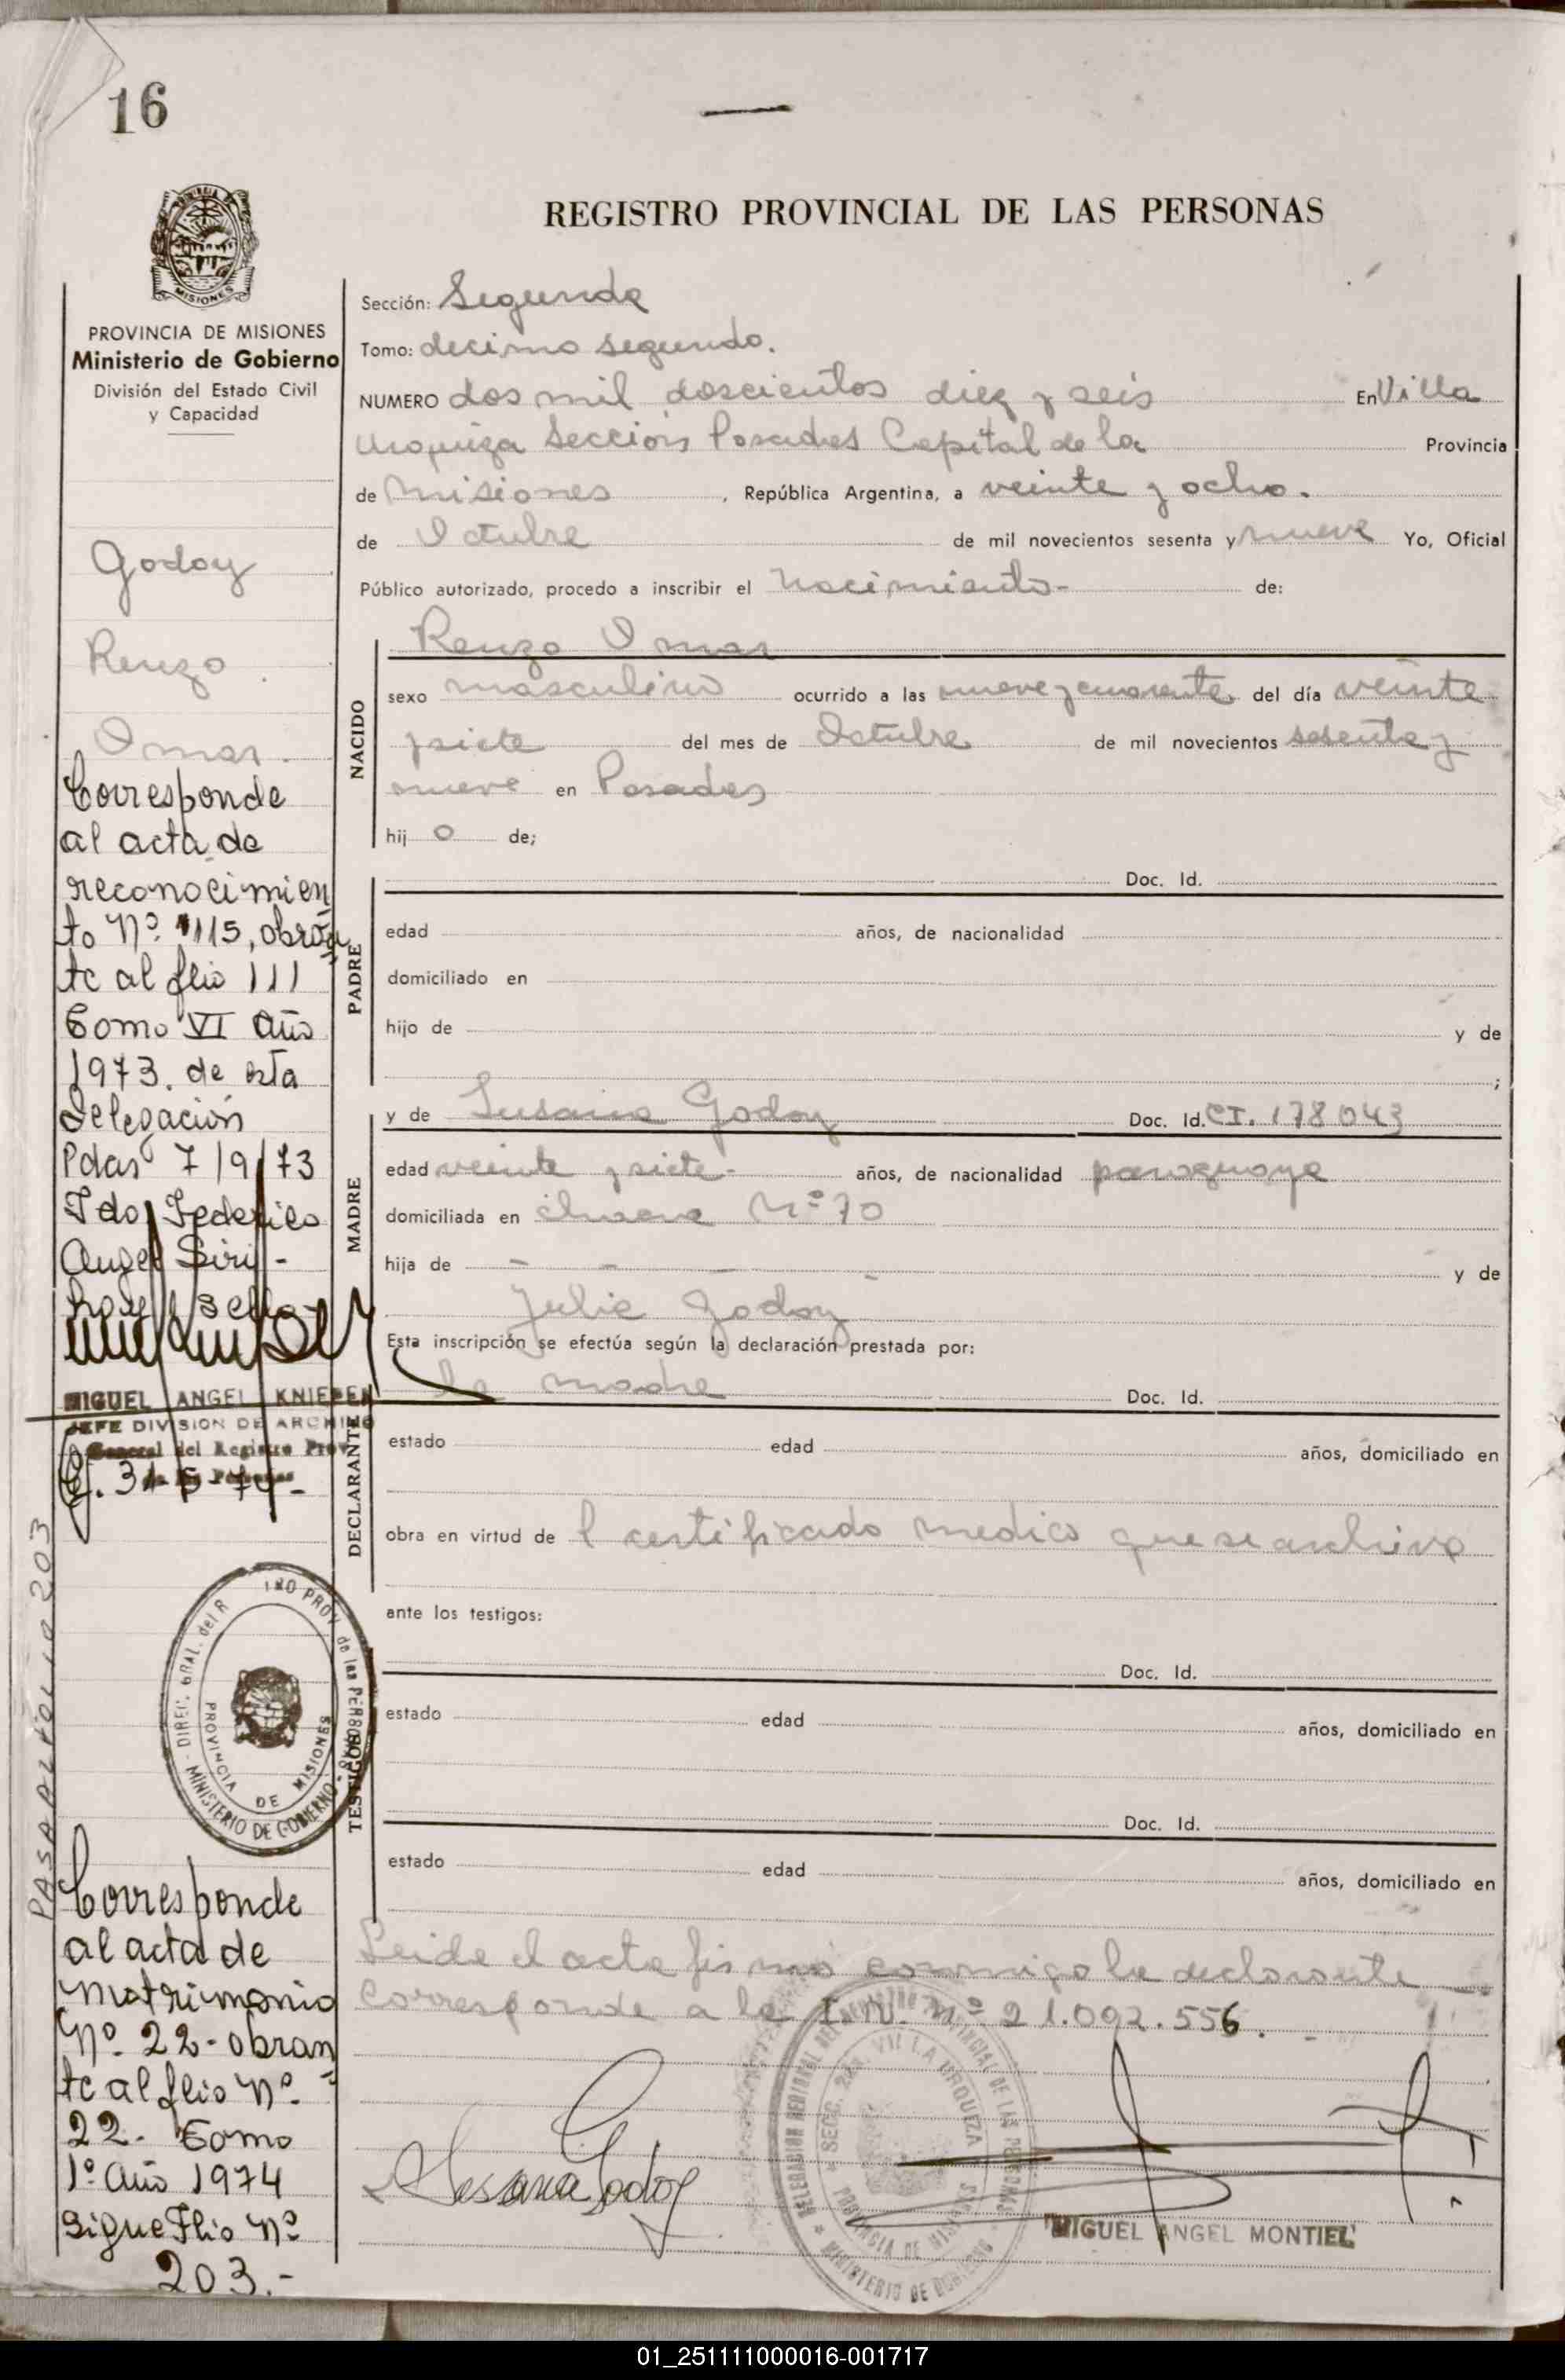 16
REGISTRO PROVINCIAL DE LAS PERSONAS
MISIONES
PROVINCIA DE MISIONES
Ministerio de Gobierno
División del Estado Civil
y Capacidad
Godoy
Renzo
Omar.
Corresponde
al acta de
reconocimien
to Nº 1115, obran
te al flio 111
Tomo VI Año
1973. de esta
Delegación
Pdas 7/9/73
Fdo Federico
Angel Siri -
Hay sello
MIGUEL ANGEL KNIEPER
JEFE DIVISION DE ARCHIVO
General del Registro Prov.
de las Personas
PASA AL FOLIO 203
DIREC. GRAL. del R PROV. de las PERSONAS
MINISTERIO DE GOBIERNO
PROVINCIA DE MISIONES
Corresponde
al acta de
matrimonio
Nº 22- obran
te al flio Nº
22- Tomo
1º Año 1974
sigue Flio Nº
203.-
Sección: Segunda
Tomo: decimo segundo.
NUMERO dos mil doscientos diez y seis En Villa
Urquiza Seccion Posadas Capital de la Provincia
de Misiones , República Argentina, a veinte y ocho.
de Octubre de mil novecientos sesenta y nueve Yo, Oficial
Público autorizado, procedo a inscribir el Nacimiento- de:
NACIDO
Renzo Omar
sexo masculino ocurrido a las nueve y cuarenta del día veinte
y siete del mes de Octubre de mil novecientos sesenta y
nueve en Posadas
hij o de;
PADRE
Doc. Id.
edad años, de nacionalidad
domiciliado en
hijo de y de
;
MADRE
y de Susana Godoy Doc. Id. CI. 178043
edad veinte y siete- años, de nacionalidad paraguaya
domiciliada en chacra Nº 70
hija de - - - - y de
Julia Godoy
Esta inscripción se efectúa según la declaración prestada por:
DECLARANTE
la madre Doc. Id.
estado edad años, domiciliado en
obra en virtud de l certificado medico que se archiva
ante los testigos:
TESTIGOS
Doc. Id.
estado edad años, domiciliado en
Doc. Id.
estado edad años, domiciliado en
Leida el acta firmó conmigo la declarante
Corresponde a la I.N. Nº 21.092.556.
Susana Godoy
SECC. 2da. VILLA URQUIZA
PROVINCIA DE MISIONES
MINISTERIO DE GOBIERNO
MIGUEL ANGEL MONTIEL
01_251111000016-001717